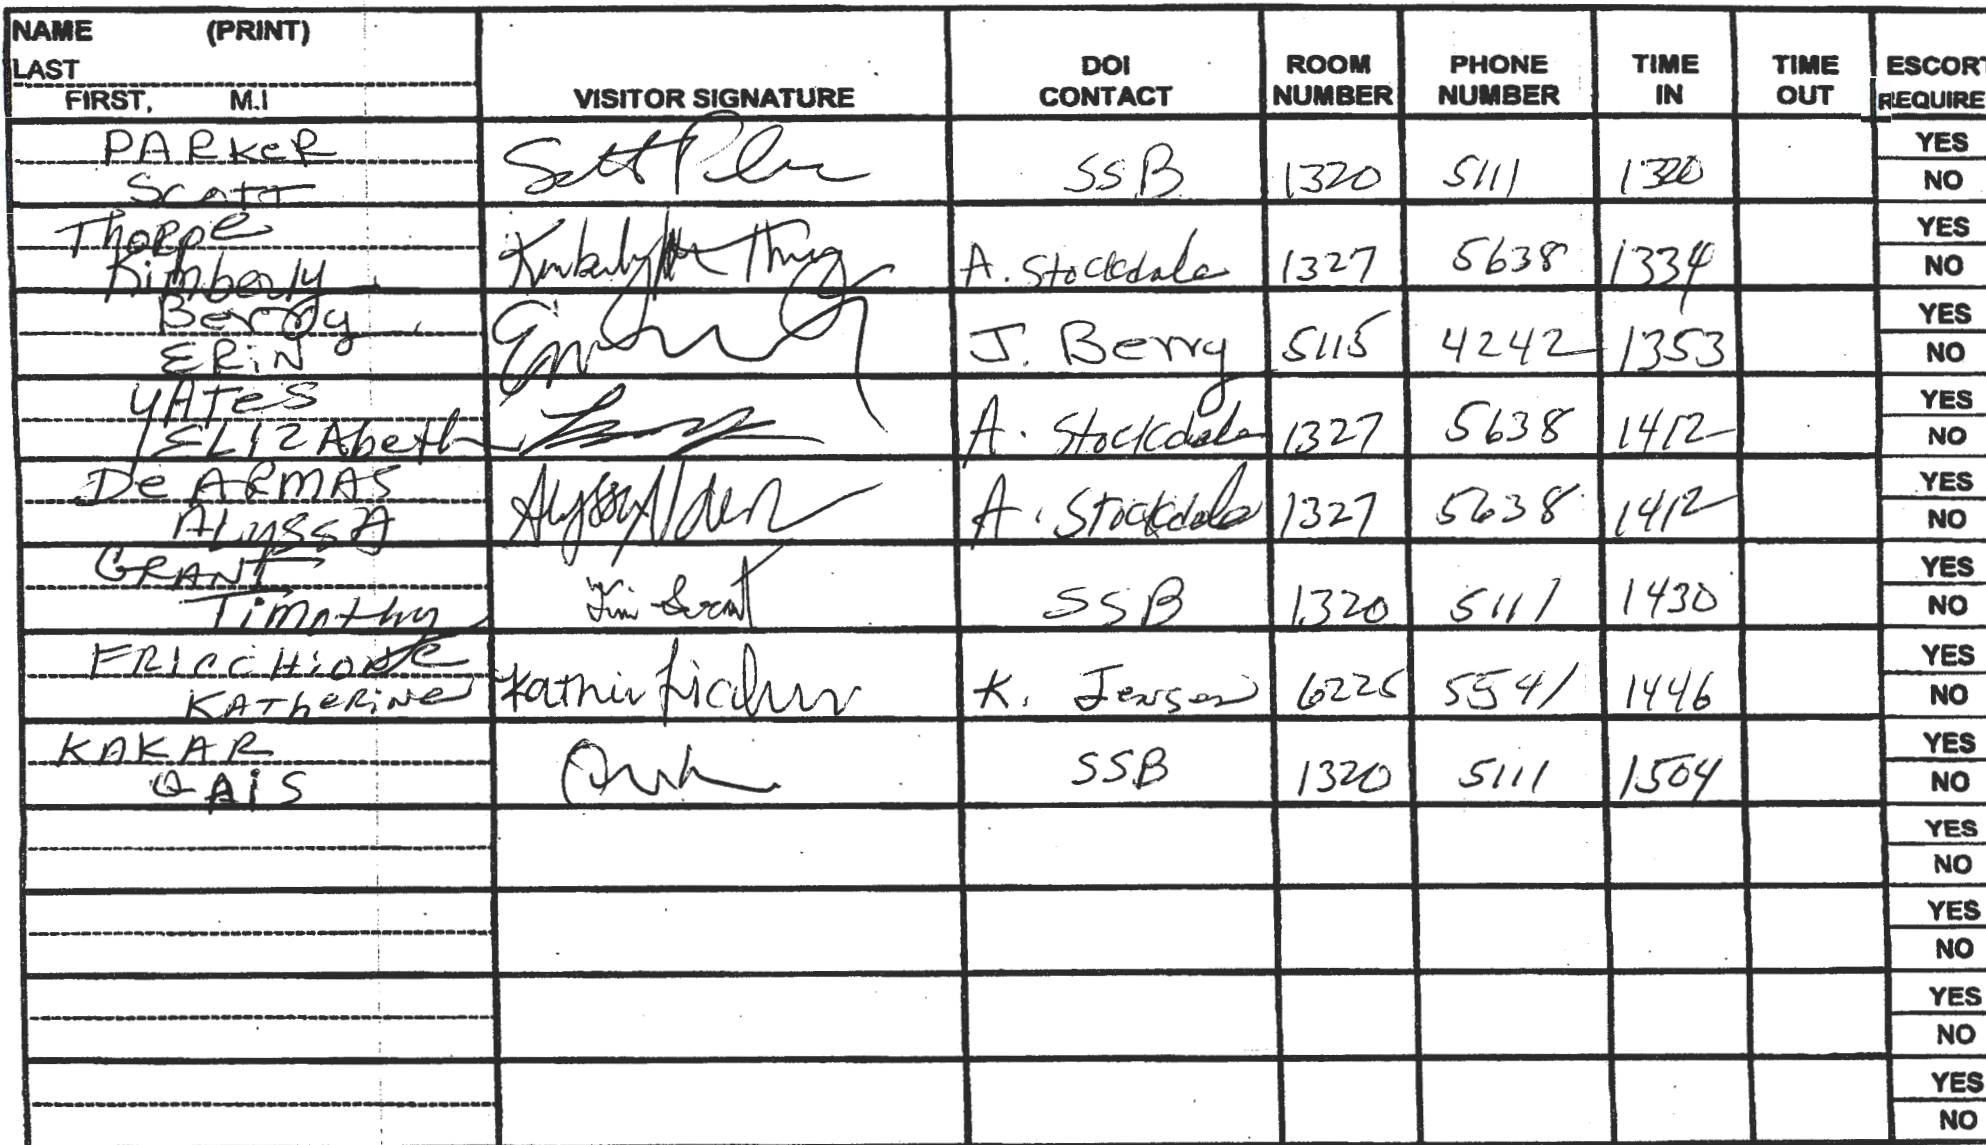 NAME (PRINT)
LAST
FIRST, M.I
VISITOR SIGNATURE
DOI CONTACT
ROOM NUMBER
PHONE NUMBER
TIME IN
TIME OUT
ESCORT REQUIRE
PARKER
Scott
SSB 1320 5111 1320
YES
NO
Thorpe
Kimberly
A. Stockdale 1327 5638 1334
YES
NO
Berry
ERiN
J. Berry 5115 4242 1353
YES
NO
YATES
ELIZAbeth
A. Stockdale 1327 5638 1412
YES
NO
De ARMAS
ALYSSA
A. Stockdale 1327 5638 1412
YES
NO
GRANT
Timothy
Tim Grant
SSB 1320 5111 1430
YES
NO
FRICCHIONE
KATHERINE
K. Jensen 6225 5541 1446
YES
NO
KAKAR
QAIS
SSB 1320 5111 1504
YES
NO
YES
NO
YES
NO
YES
NO
YES
NO